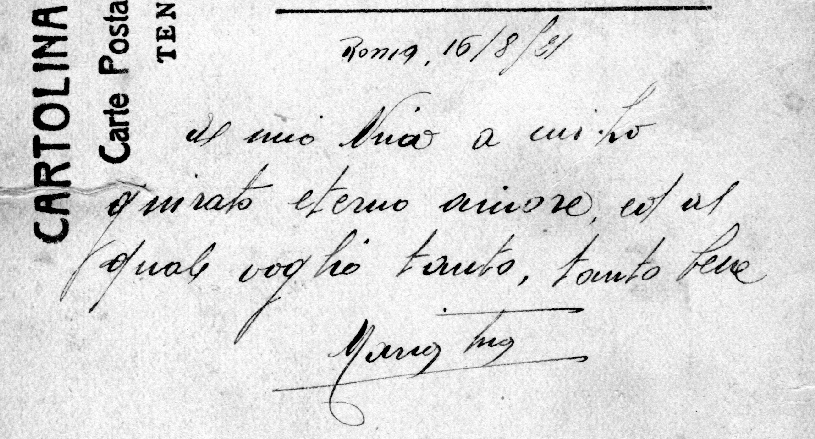 CARTOLINA
Carte Posta
TEN
Roma, 16/8/21
al mio Nino a cui ho
giurato eterno amore, ed al
quale voglio tanto, tanto bene
Maria tua